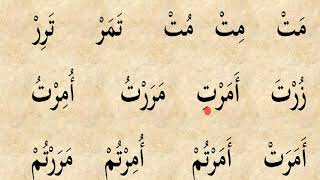 مَتْ مِتْ مُتْ تَمَرْ تَرِرْ
زُرْتَ أَمَرْتِ مَرَرْتُ أُمِرْتُ
أَمَرَتْ أَمَرْتُمْ أُمِرْتُمْ مَرَرْتُمْ